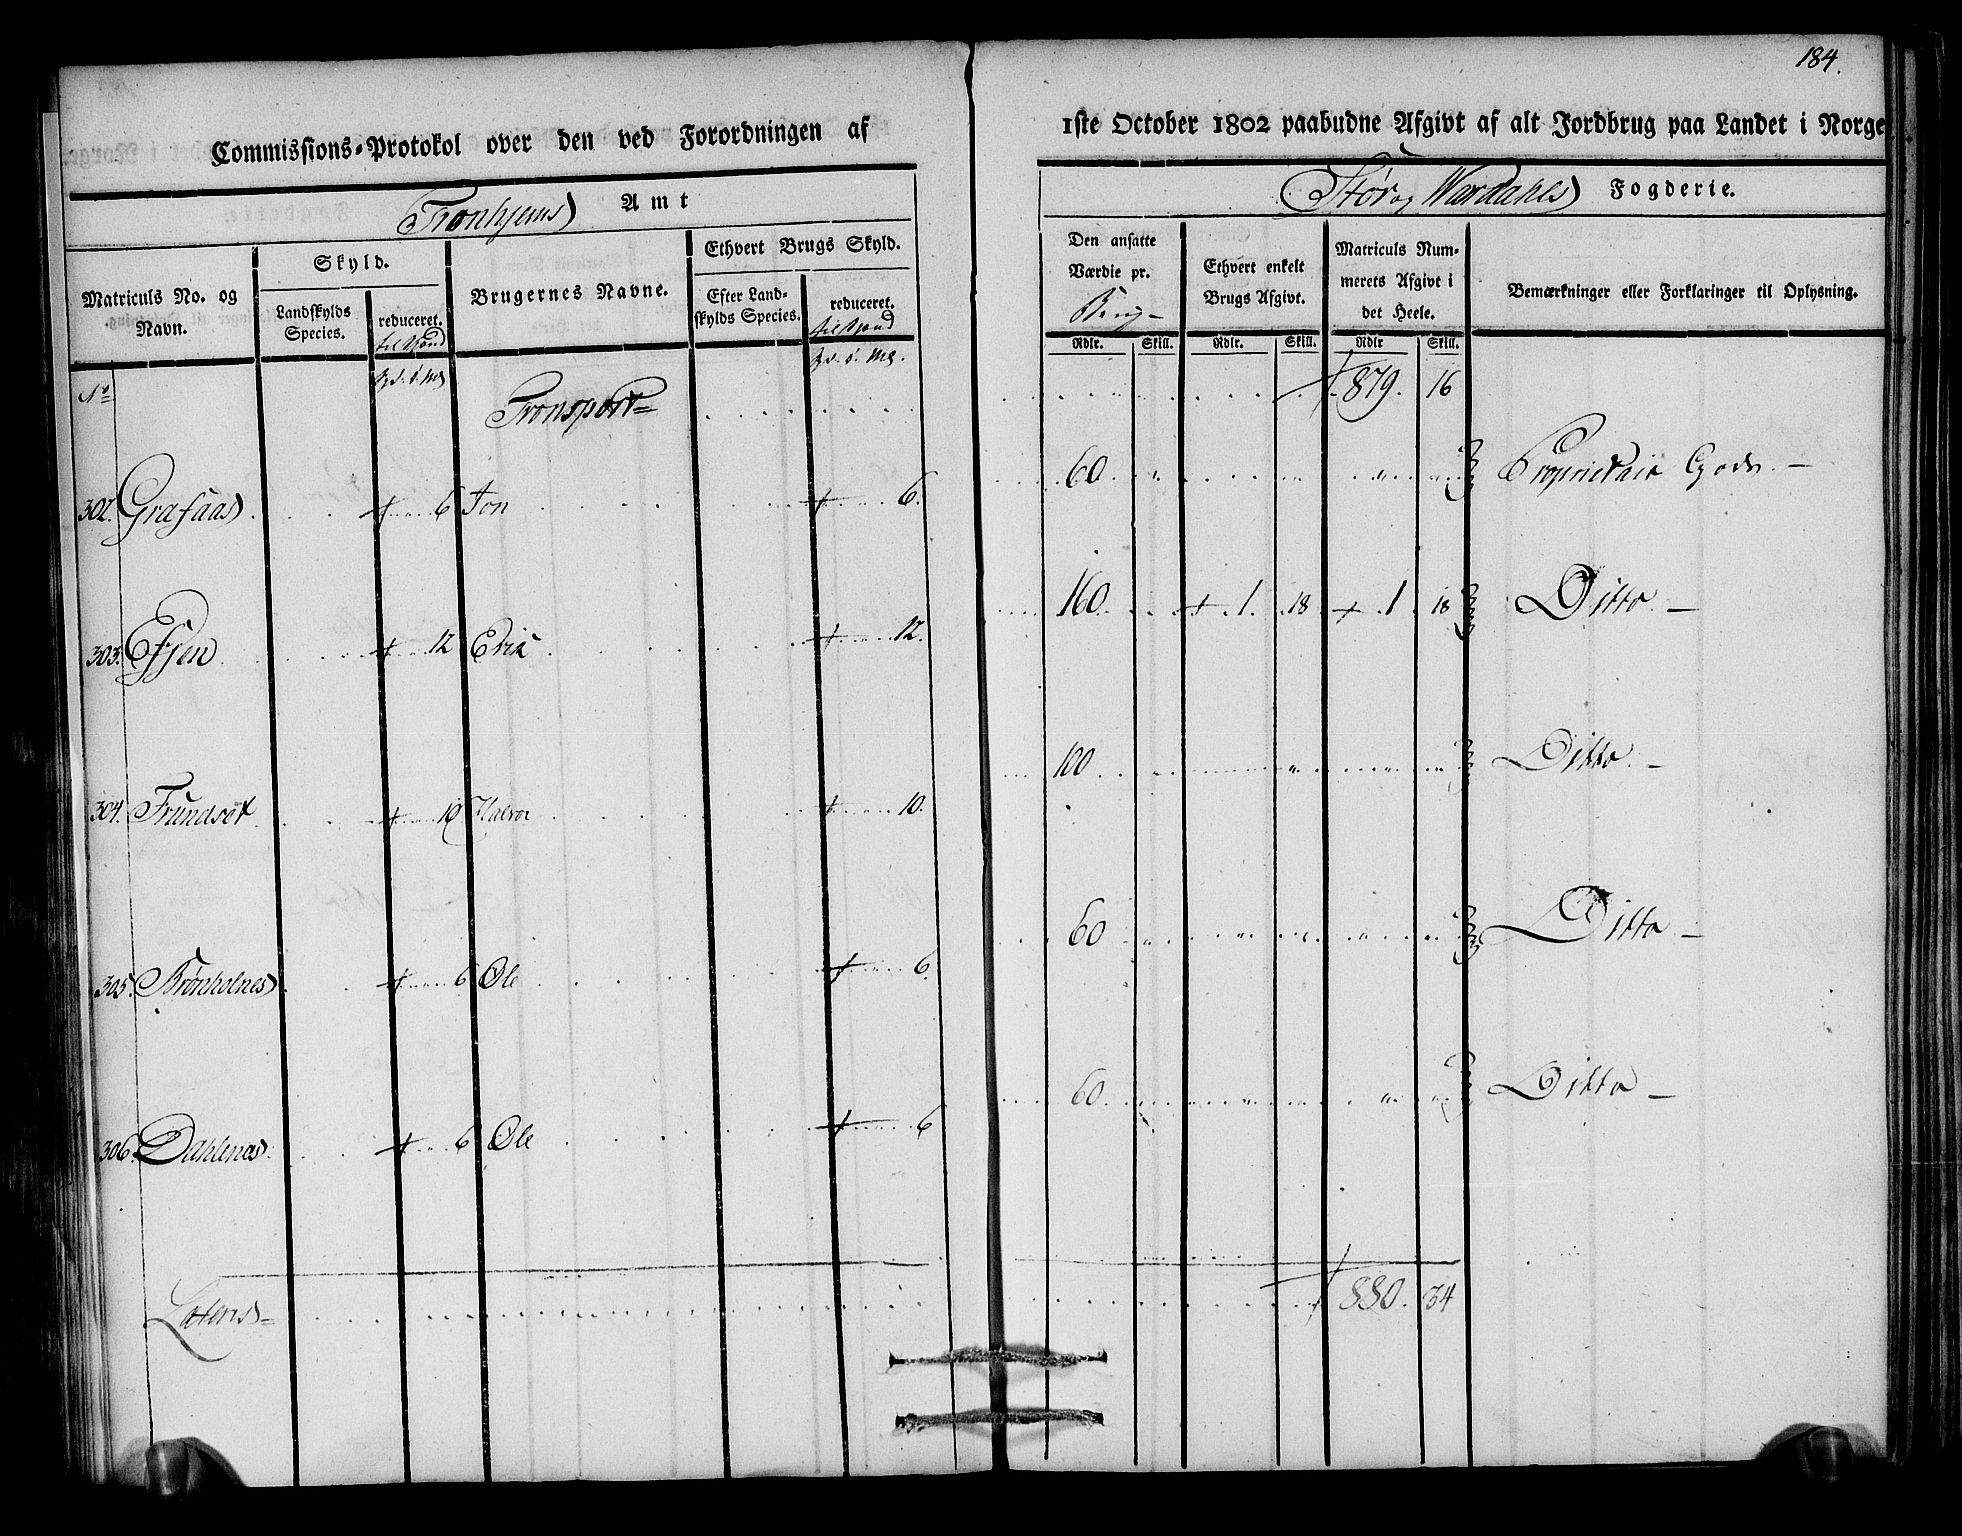 184.
Commissions-Protokol over den ved Forordningen af 1ste October 1802 paabudne Afgivt af alt Jordbrug paa Landet i Norge
Tronhjems Amt
Stør og Wærdahls Fogderie.
Matriculs No. og Navn.
Skyld.
Landskylds Species.
reduceret.
til
Brugernes Navne.
Ethvert Brugs Skyld.
Efter Landskylds Species.
reduceret.
til
Den ansatte Værdie pr. Brug
Ethvert enkelt Brugs Afgivt.
Matriculs Nummerets Afgivt i det Heele.
Bemærkninger eller Forklaringer til Oplysning.
Rdlr. Skill. Rdlr. Skill. Rdlr Skill.
No
Transport= 879. 16
302. Græsaas 6 Jon 6. 60. Proprietair Gods. —
303. 12 Erik 12. 160. 1. 18 1. 18 Ditto. —
304. Trundset 10 Halvor 10. 100. Ditto. —
305. Brønholnes 6 Ole 6. 60 Ditto —
306. Dahlenæs 6 Ole 6 60. Ditto —
Lateris= 880. 34